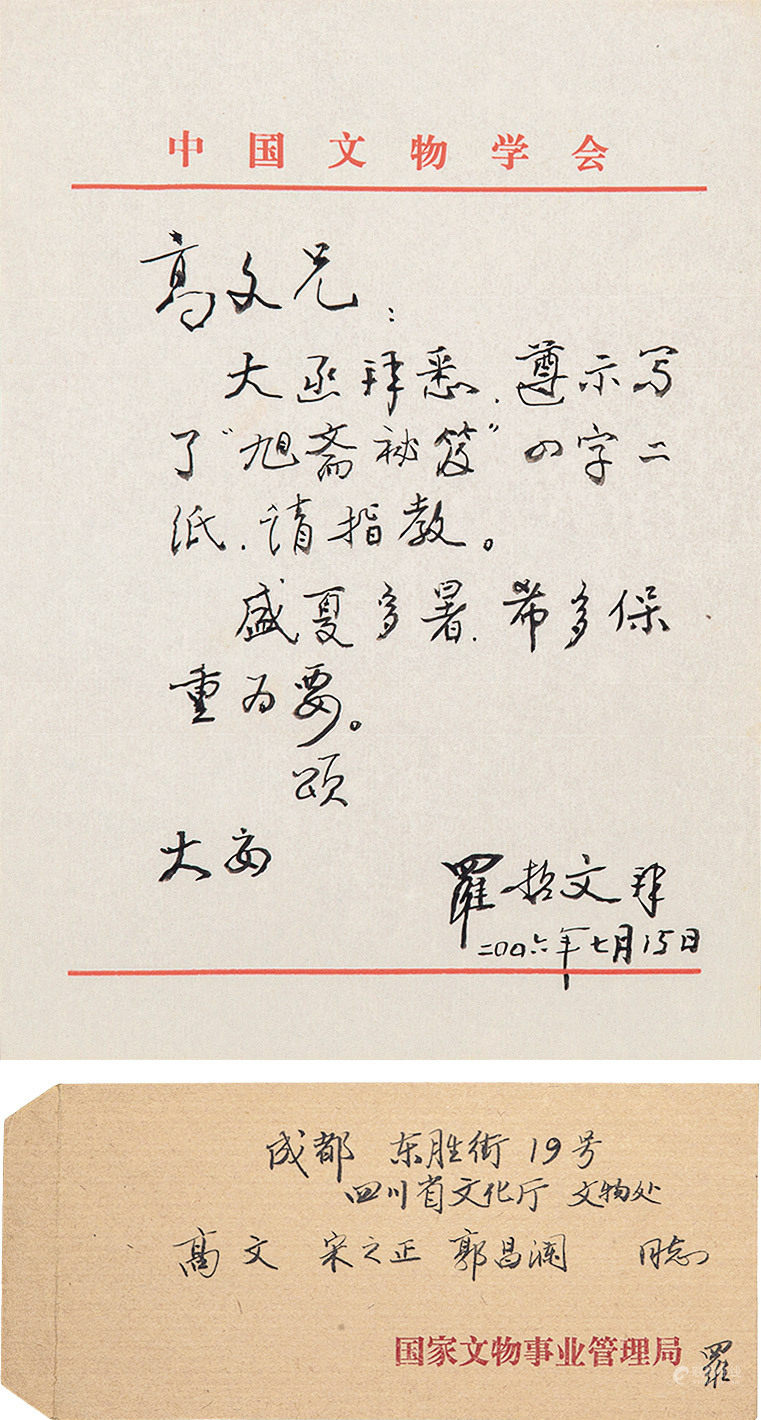 中国文物学会
高文兄：
大函拜悉，遵示写
了“旭斋秘笈”四字二
纸，请指教。
盛夏多暑，希多保
重为要。
颂
大安
罗哲文拜
二00六年七月15日
成都 东胜街 19号
四川省文化厅 文物处
高文 宋之正 郭昌澜 同志
国家文物事业管理局 羅